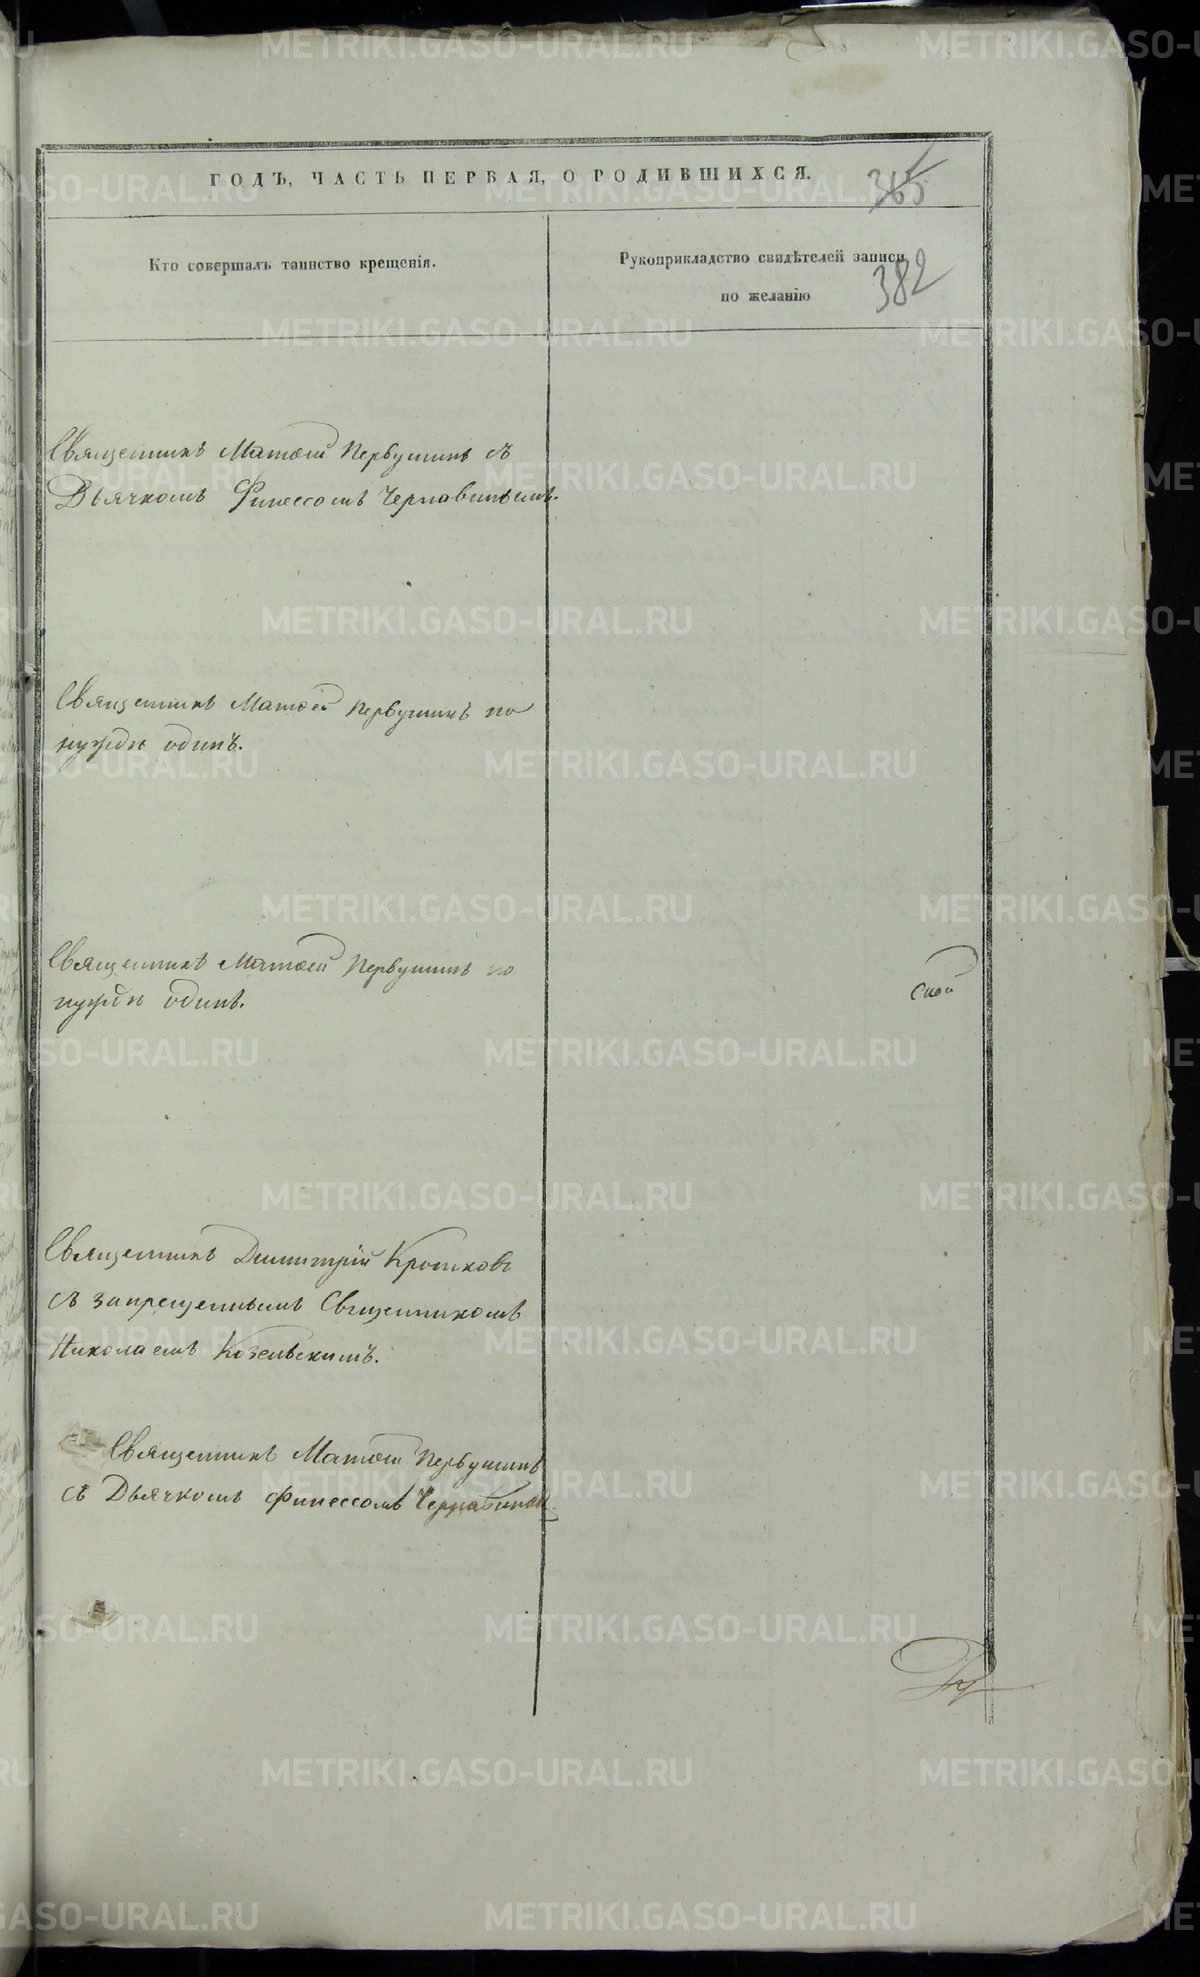 ГОДЪ, ЧАСТЬ ПЕРВАЯ, О РОДИВШИХСЯ.
365
Кто совершалъ таинство крещенія.
Рукоприкладство свидѣтелей записи
по желанію
382
Священникъ Матѳей Первушинъ съ
Дьячкомъ Финессомъ Чернавинымъ.
Священникъ Матѳей Первушинъ по
нуждѣ одинъ.
Священникъ Матѳей Первушинъ по
нуждѣ одинъ.
Священникъ Димитрій Кротковъ
съ запрещеннымъ Священникомъ
Николаемъ Козельскимъ.
Священникъ Матѳей Первушинъ
съ Дьячкомъ Финессомъ
METRIKI.GASO-URAL.RU